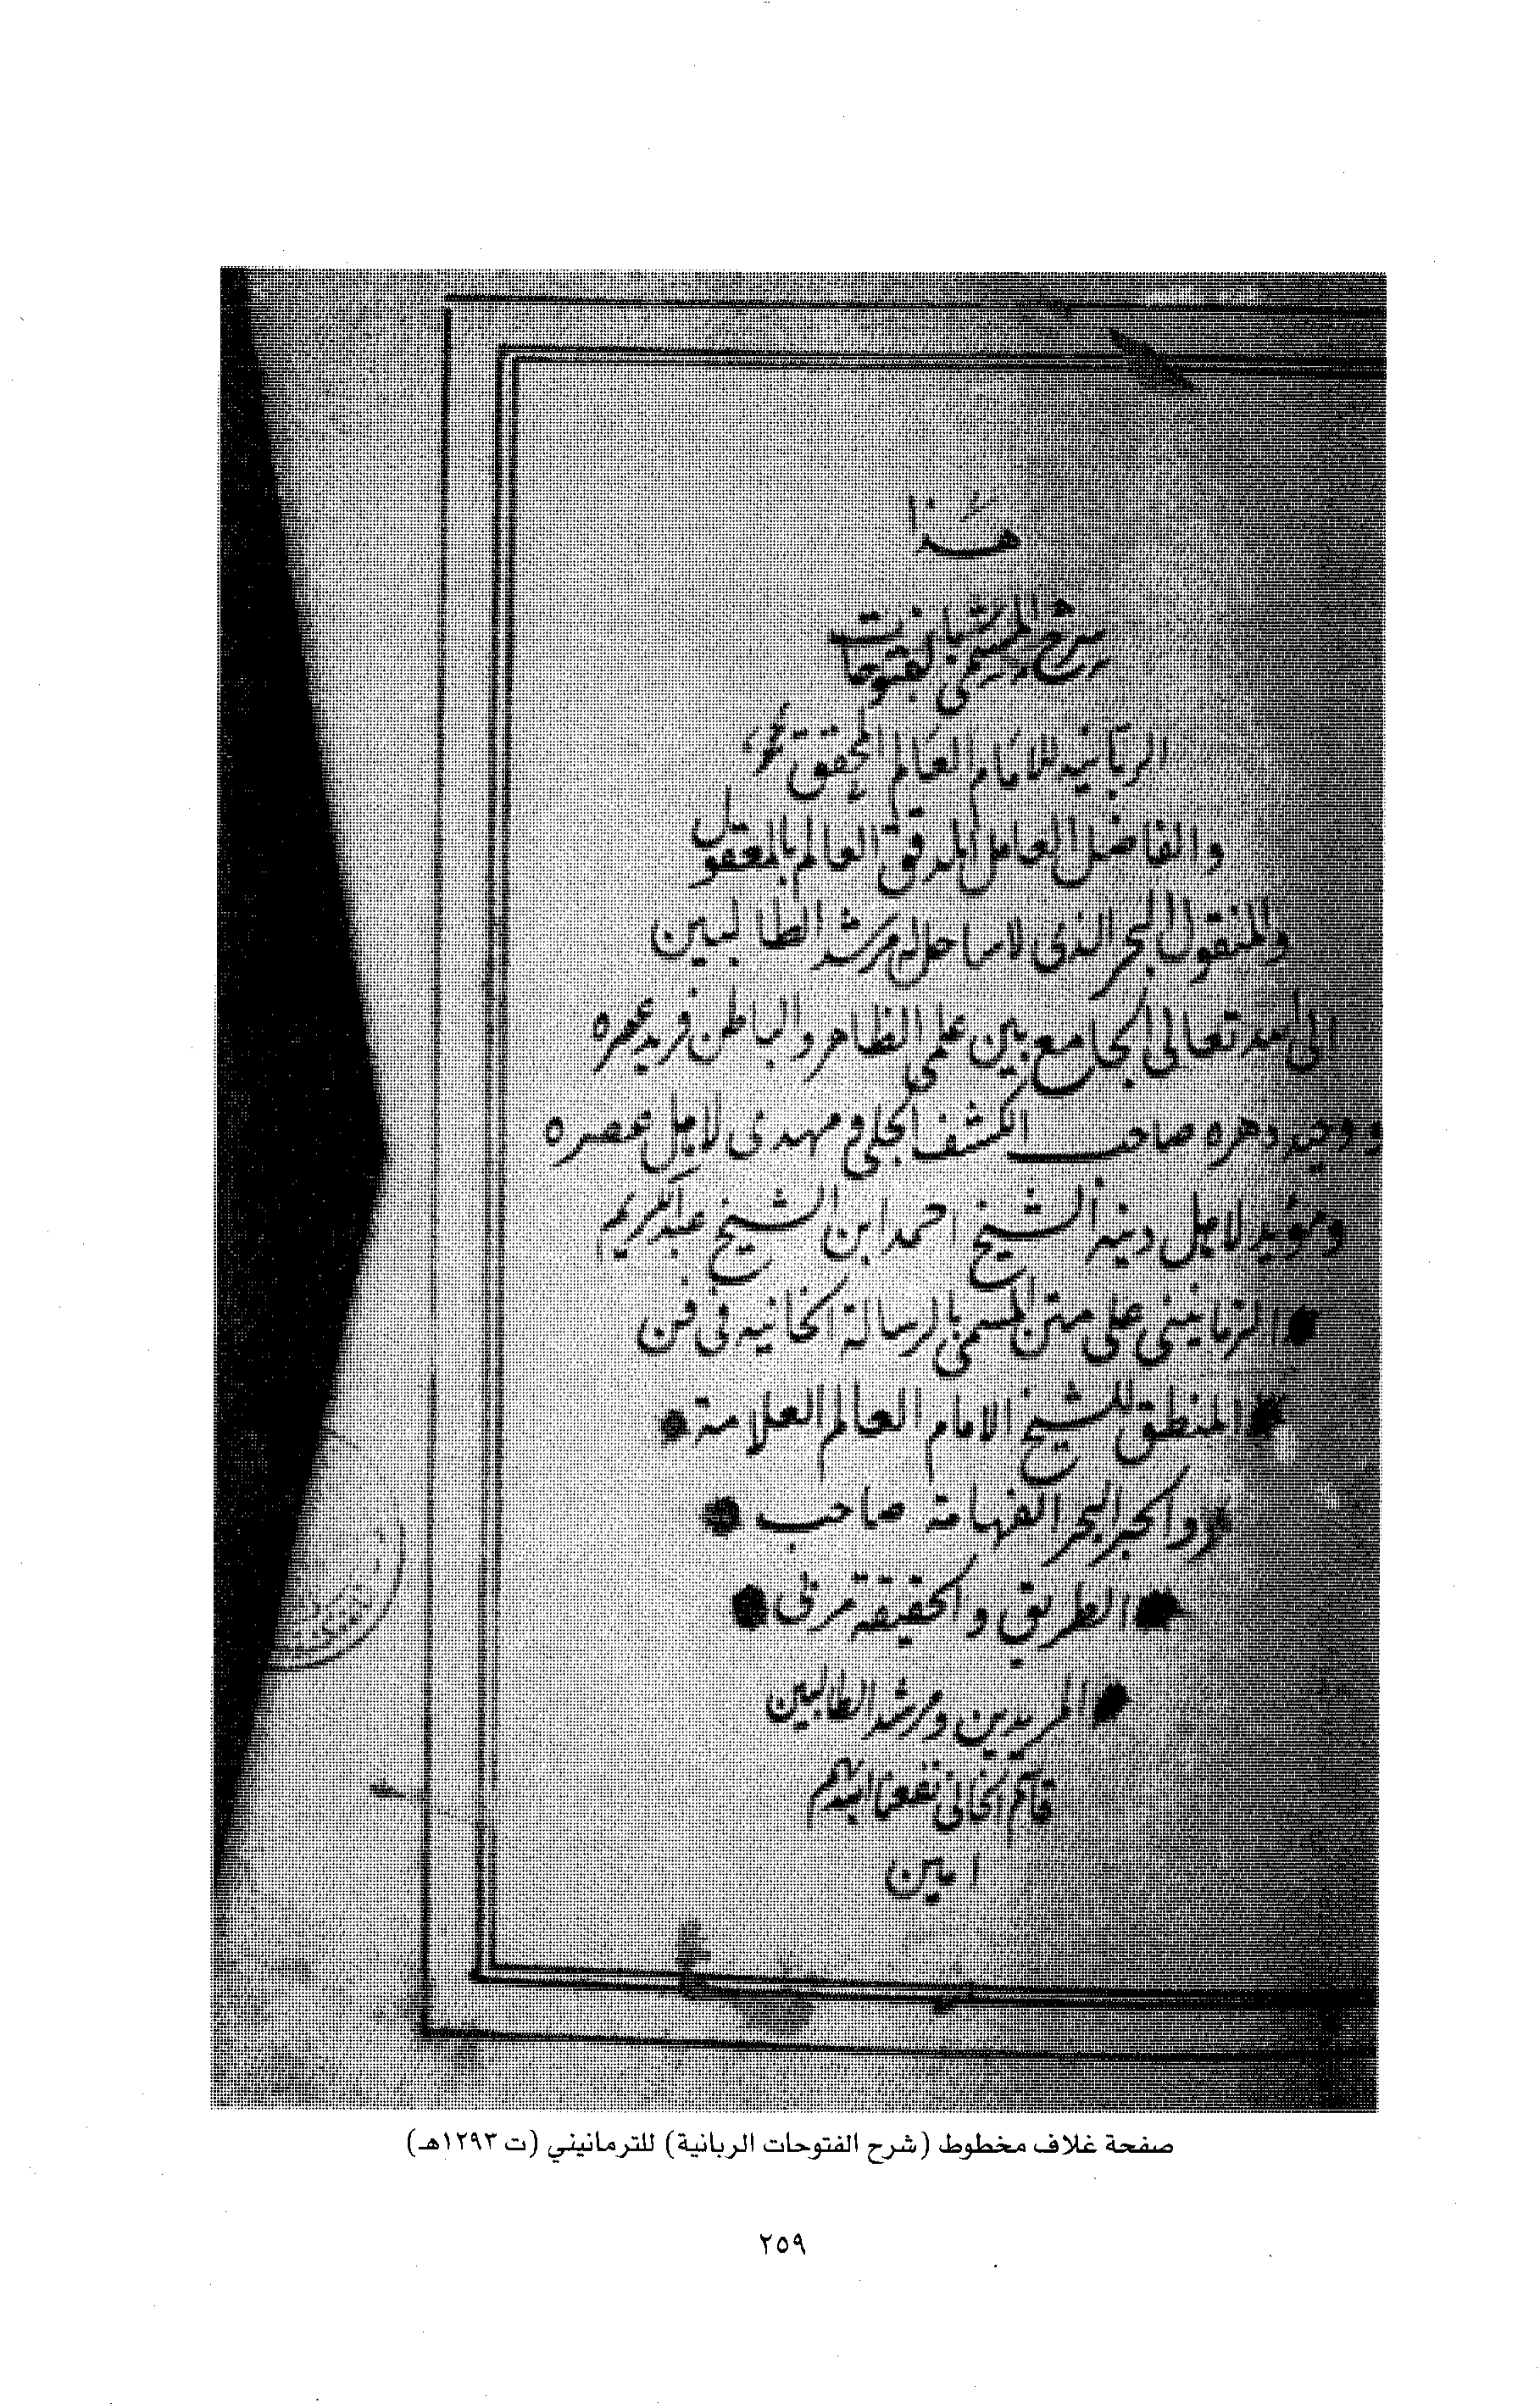 هذا
شرح المسمى بالفتوحات
الربانيه للامام العالم المحقق
والفاضل العامل المدقق العالم بالمعقول
والمنقول البحر الذى لاساحل له مرشد الطالبين
الى الله تعالى الجامع بين علمى الظاهر والباطن فريد عصره
ووحيد دهره صاحب الكشف الجلي ومهدى لاهل عصره
ومؤيد لاهل دينه الشيخ احمد ابن الشيخ عبد الكريم
الترمانينى على متن المسمى بالرسالة الخانيه فى فن
المنطق للشيخ الامام العالم العلامة
والحبر البحر الفهامة صاحب
الطريق والحقيقة مربى
المريدين ومرشد الطالبين
قاسم الخانى نفعنا الله بهم
امين
صفحة غلاف مخطوط (شرح الفتوحات الربانية) للترمانيني (ت ١٢٩٣هـ)
٢٥٩